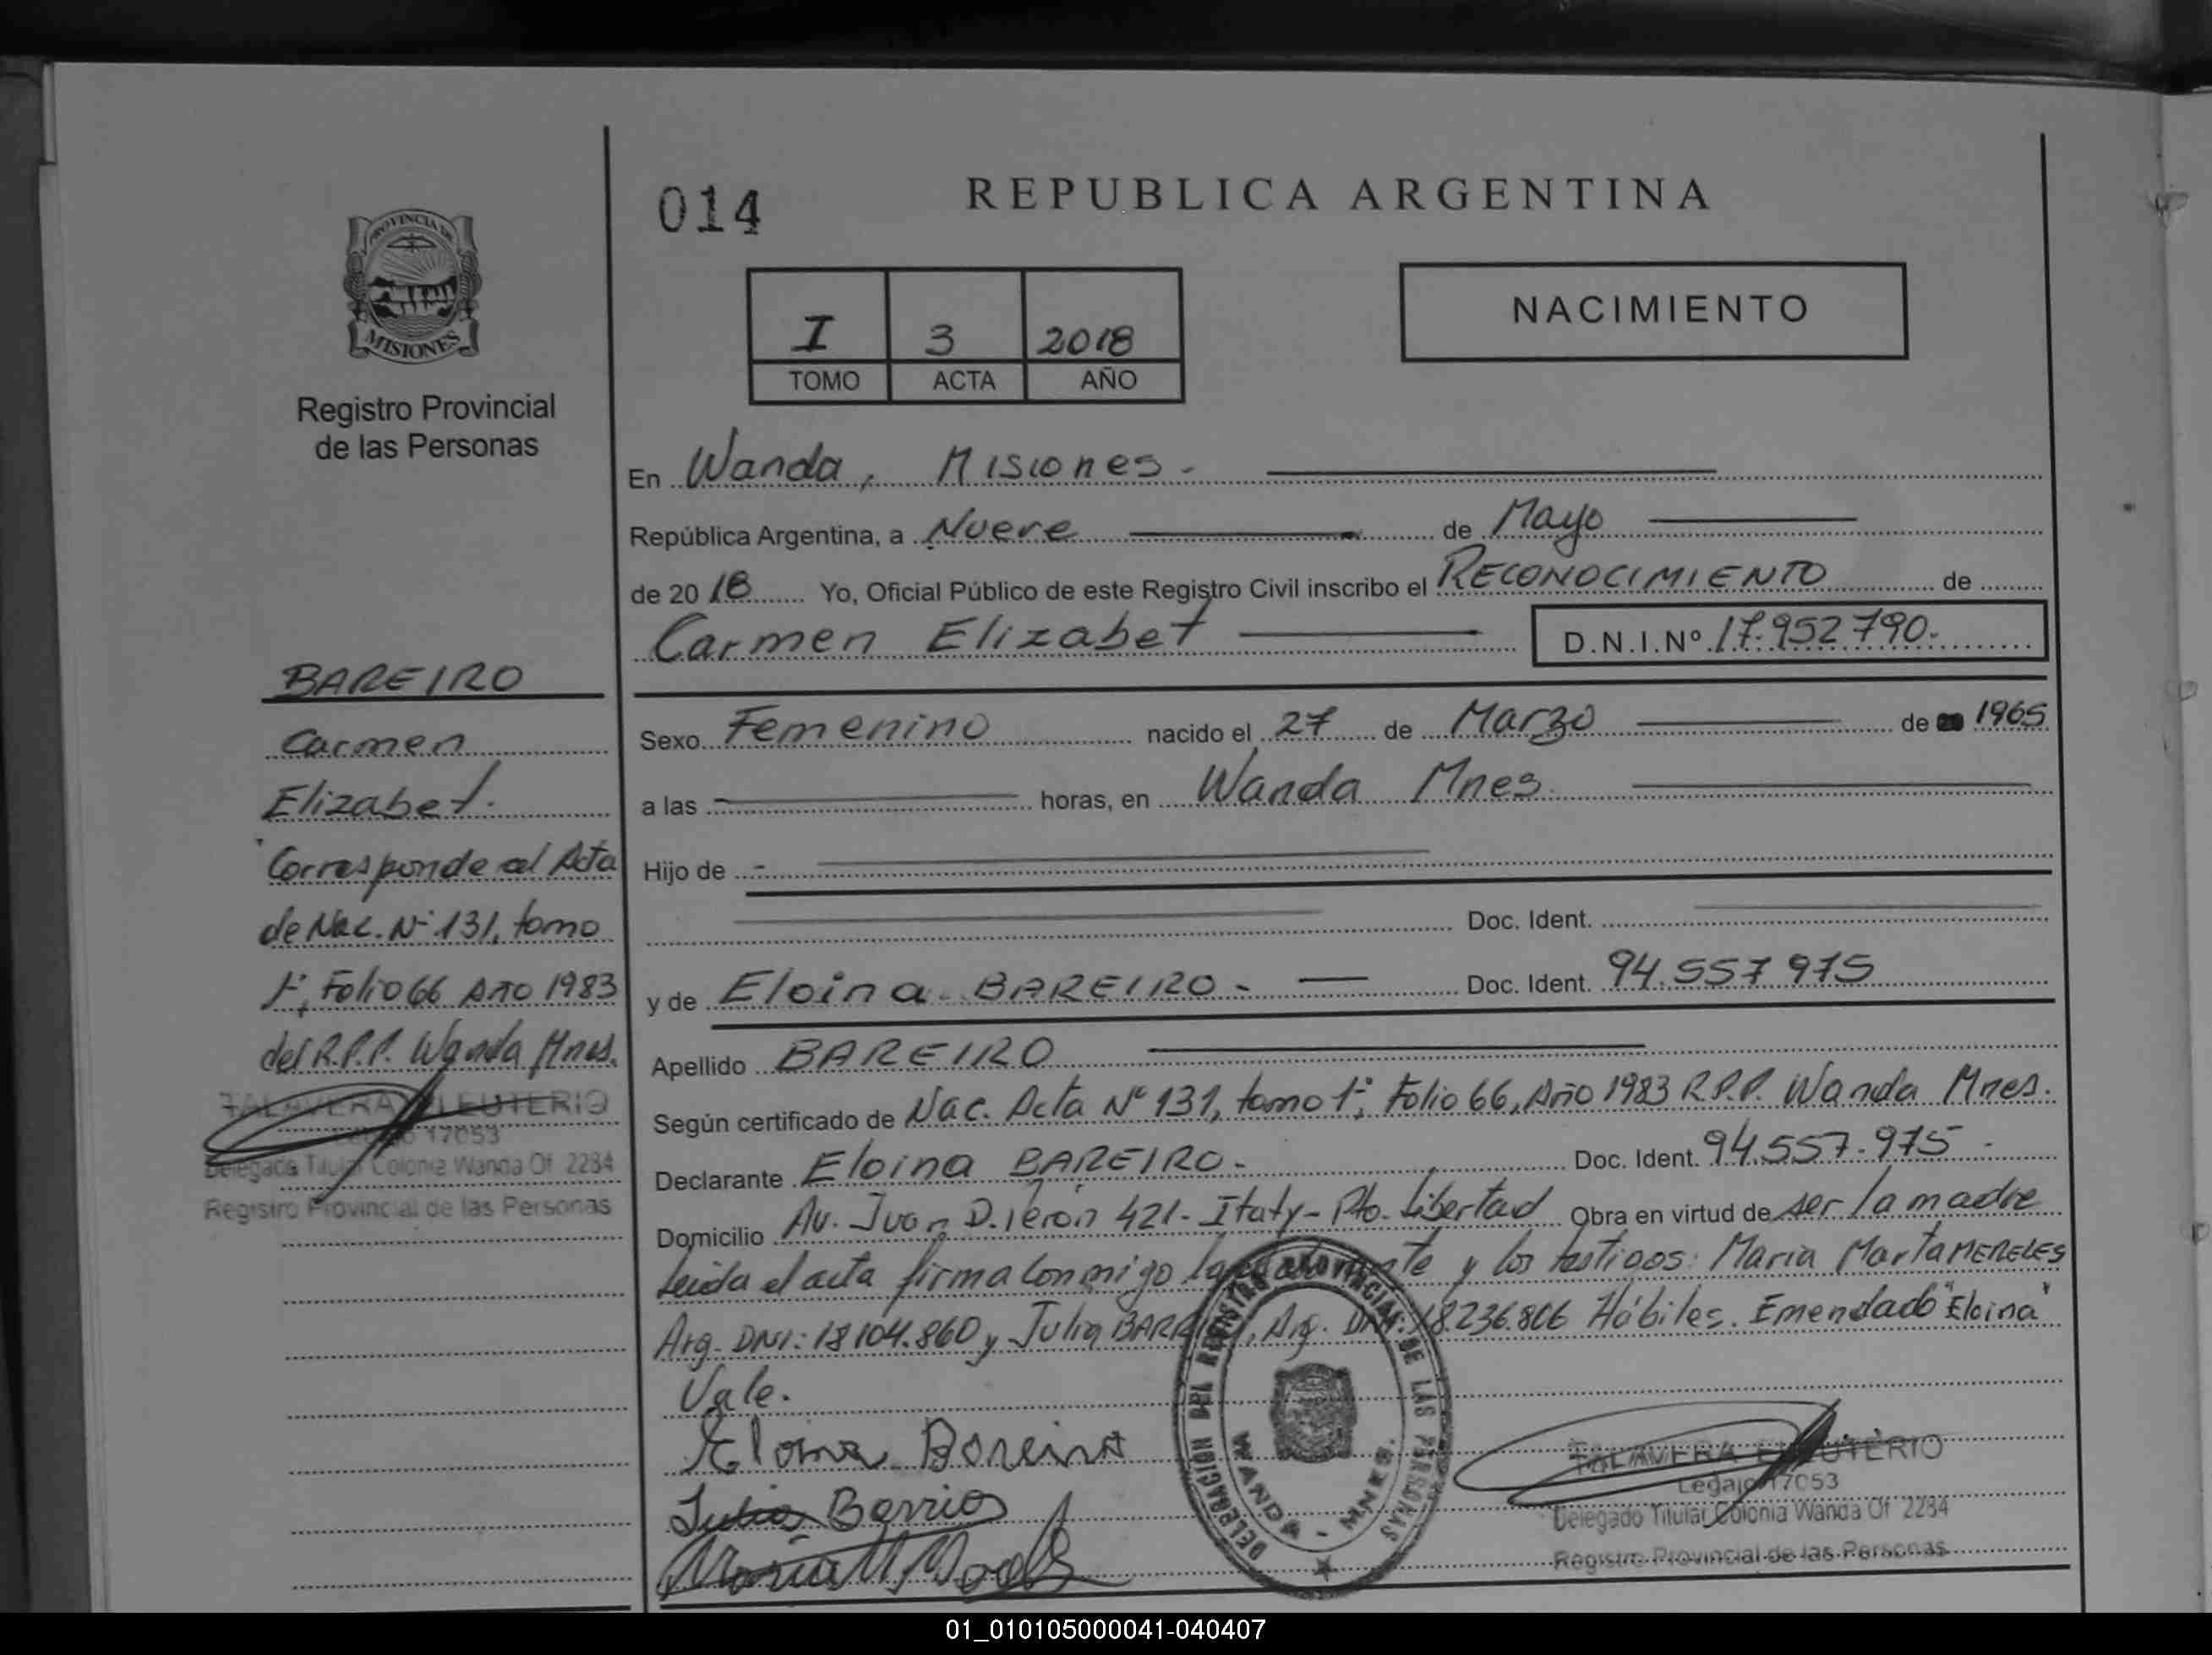 014
REPUBLICA ARGENTINA
PROVINCIA DE
MISIONES
Registro Provincial
de las Personas
I 3 2018
TOMO ACTA AÑO
NACIMIENTO
En Wanda, Misiones.
República Argentina, a Nueve de Mayo
de 2018 Yo, Oficial Público de este Registro Civil inscribo el RECONOCIMIENTO de
Carmen Elizabet D.N.I.Nº 17.952790.
BAREIRO
Carmen
Elizabet.
Corresponde al Acta
de Nac. Nº 131, tomo
1º, Folio 66 Año 1983
del R.P.P. Wanda Mnes.
TALAVERA ELEUTERIO
Legajo 17053
Delegado Titular Colonia Wanda Of 2284
Registro Provincial de las Personas
Sexo Femenino nacido el 27 de Marzo de 1965
a las horas, en Wanda Mnes.
Hijo de
Doc. Ident.
y de Eloina BAREIRO - Doc. Ident. 94.557975
Apellido BAREIRO
Según certificado de Nac. Acta Nº 131, tomo 1º, Folio 66, Año 1983 R.P.P. Wanda Mnes.
Declarante Eloina BAREIRO. Doc. Ident. 94.557.975.
Domicilio Av. Juan D. Perón 421- Itaty- Pto. Libertad Obra en virtud de ser la madre
Leida el acta firma conmigo la y los testigos: Maria Marta MERELES
Arg. DNI: 18104.860 y Julia Arg. DNI: 18.236.806 Hábiles. Emendado "Eloina"
Vale.
Eloina Boreiro
Julia Barrios
DELEGACION DEL REGISTRO PROVINCIAL DE LAS PERSONAS
WANDA - MNES.
TALAVERA ELEUTERIO
Legajo 17053
Delegado Titular Colonia Wanda Of 2284
Registro Provincial de las Personas
01_010105000041-040407